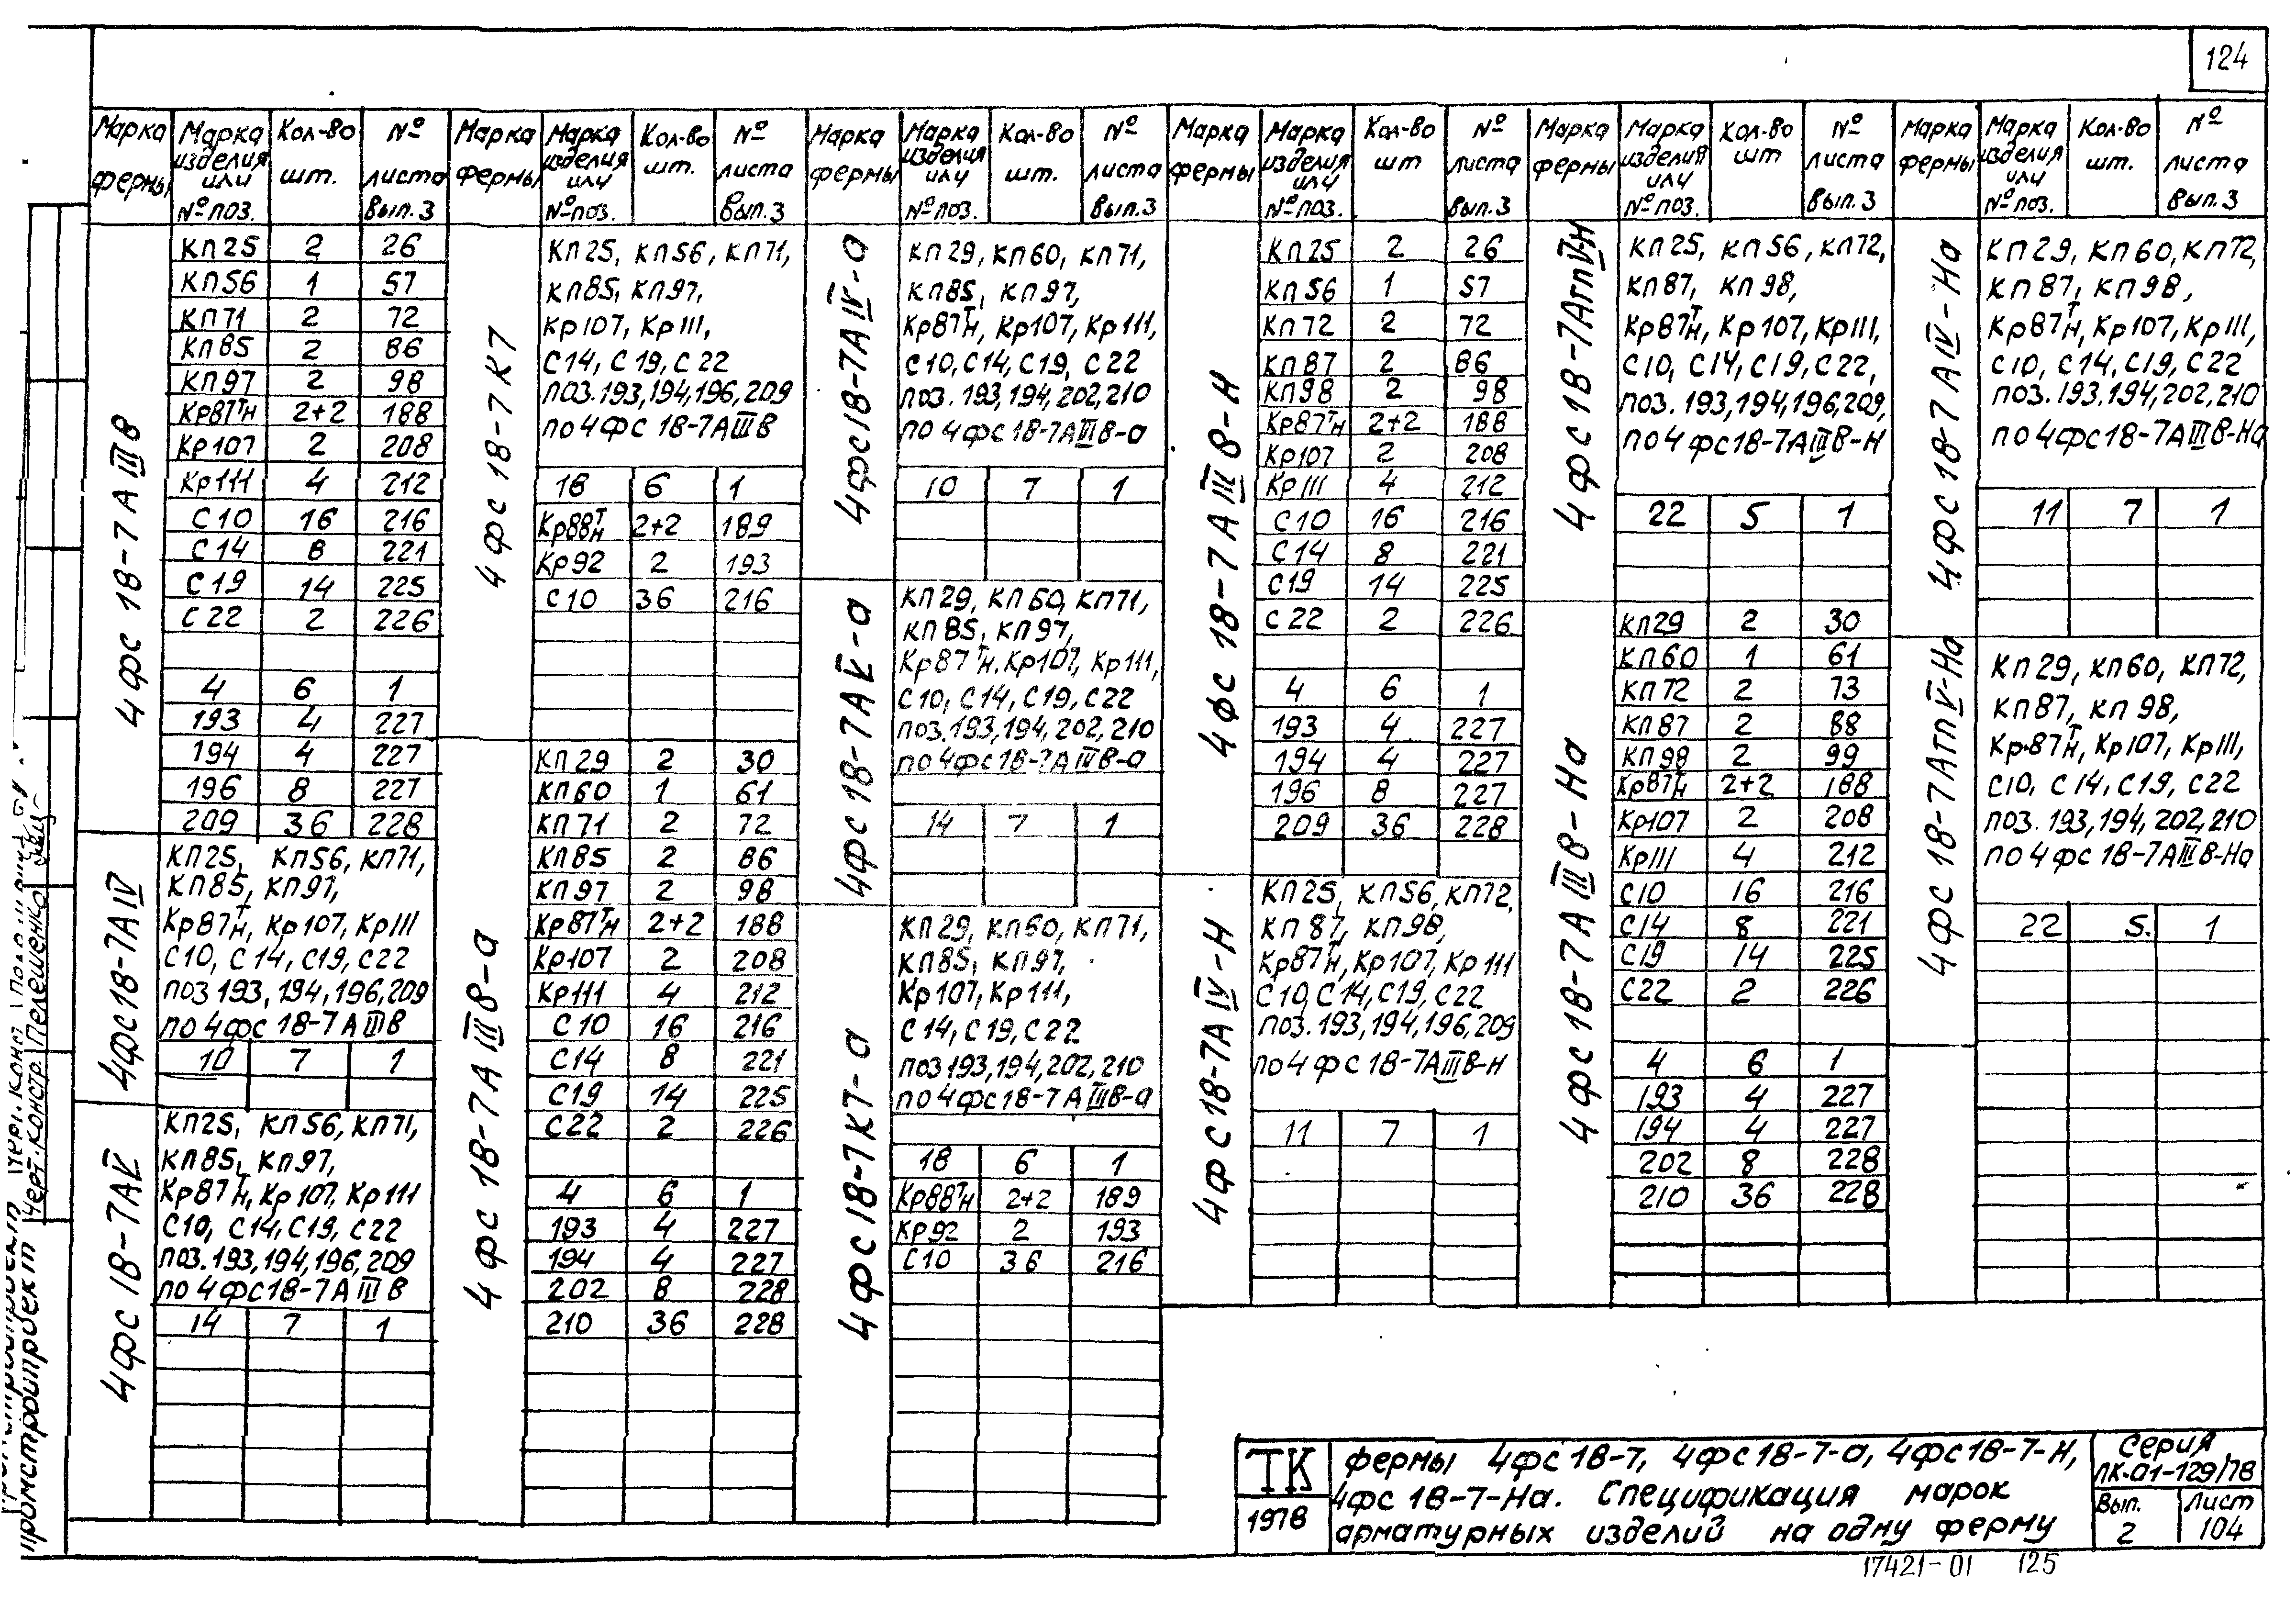 124
Марка фермы | Марка изделия или № поз. | Кол-во шт. | № листа Вып. 3
4фс 18-7АIIIв
КП25 2 26
КП56 1 57
КП71 2 72
КП85 2 86
КП97 2 98
Кр87тн 2+2 188
Кр107 2 208
Кр111 4 212
С10 16 216
С14 8 221
С19 14 225
С22 2 226
4 6 1
193 4 227
194 4 227
196 8 227
209 36 228
4фс18-7АIV
КП25, КП56, КП71,
КП85, КП97,
Кр87тн, Кр107, Кр111
С10, С14, С19, С22
поз 193, 194, 196, 209
по 4фс 18-7АIIIв
10 7 1
4фс 18-7АV
КП25, КП56, КП71,
КП85, КП97,
Кр87тн, Кр107, Кр111
С10, С14, С19, С22
поз. 193, 194, 196, 209
по 4фс18-7АIIIв
14 7 1
Марка фермы | Марка изделия или № поз. | Кол-во шт. | № листа Вып. 3
4фс 18-7К7
КП25, КП56, КП71,
КП85, КП97,
Кр107, Кр111,
С14, С19, С22
поз. 193, 194, 196, 209
по 4фс 18-7АIIIв
18 6 1
Кр88тн 2+2 189
Кр92 2 193
С10 36 216
4фс 18-7АIIIв-а
КП29 2 30
КП60 1 61
КП71 2 72
КП85 2 86
КП97 2 98
Кр87тн 2+2 188
Кр107 2 208
Кр111 4 212
С10 16 216
С14 8 221
С19 14 225
С22 2 226
4 6 1
193 4 227
194 4 227
202 8 228
210 36 228
Марка фермы | Марка изделия или № поз. | Кол-во шт. | № листа Вып. 3
4фс18-7АIV-а
КП29, КП60, КП71,
КП85, КП97,
Кр87тн, Кр107, Кр111,
С10, С14, С19, С22
поз. 193, 194, 202, 210
по 4фс18-7АIIIв-а
10 7 1
4фс 18-7АV-а
КП29, КП60, КП71,
КП85, КП97,
Кр87тн, Кр107, Кр111,
С10, С14, С19, С22
поз. 193, 194, 202, 210
по 4фс18-7АIIIв-а
14 7 1
4фс18-7К7-а
КП29, КП60, КП71,
КП85, КП97,
Кр107, Кр111,
С14, С19, С22
поз 193, 194, 202, 210
по 4фс18-7АIIIв-а
18 6 1
Кр88тн 2+2 189
Кр92 2 193
С10 36 216
Марка фермы | Марка изделия или № поз. | Кол-во шт | № листа Вып. 3
4фс 18-7АIIIв-Н
КП25 2 26
КП56 1 57
КП72 2 72
КП87 2 86
КП98 2 98
Кр87тн 2+2 188
Кр107 2 208
Кр111 4 212
С10 16 216
С14 8 221
С19 14 225
С22 2 226
4 6 1
193 4 227
194 4 227
196 8 227
209 36 228
4фс18-7АIV-Н
КП25, КП56, КП72,
КП87, КП98,
Кр87тн, Кр107, Кр111
С10, С14, С19, С22
поз. 193, 194, 196, 209
по 4фс 18-7АIIIв-Н
11 7 1
Марка фермы | Марка изделия или № поз. | Кол-во шт | № листа Вып. 3
4фс 18-7АтпVН
КП25, КП56, КП72,
КП87, КП98,
Кр87тн, Кр107, Кр111,
С10, С14, С19, С22,
поз. 193, 194, 196, 209,
по 4фс18-7АIIIв-Н
22 5 1
4фс 18-7АIIIв-На
КП29 2 30
КП60 1 61
КП72 2 73
КП87 2 88
КП98 2 99
Кр87тн 2+2 188
Кр107 2 208
Кр111 4 212
С10 16 216
С14 8 221
С19 14 225
С22 2 226
4 6 1
193 4 227
194 4 227
202 8 228
210 36 228
Марка фермы | Марка изделия или № поз. | Кол-во шт. | № листа Вып. 3
4фс 18-7АIV-На
КП29, КП60, КП72,
КП87, КП98,
Кр87тн, Кр107, Кр111,
С10, С14, С19, С22
поз. 193, 194, 202, 210
по 4фс18-7АIIIв-На
11 7 1
4фс 18-7АтпV-На
КП29, КП60, КП72,
КП87, КП98,
Кр87тн, Кр107, Кр111,
С10, С14, С19, С22
поз. 193, 194, 202, 210
по 4фс 18-7АIIIв-На
22 5. 1
Черт. Констр. Пелешенко
промстройпроект
ТК
1978
фермы 4фс18-7, 4фс18-7-а, 4фс18-7-Н,
4фс 18-7-На. Спецификация марок
арматурных изделий на одну ферму
Серия
ПК-01-129/78
Вып. 2
Лист 104
17421-01 125